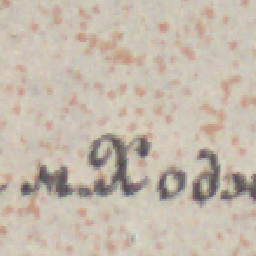 м. Ходж